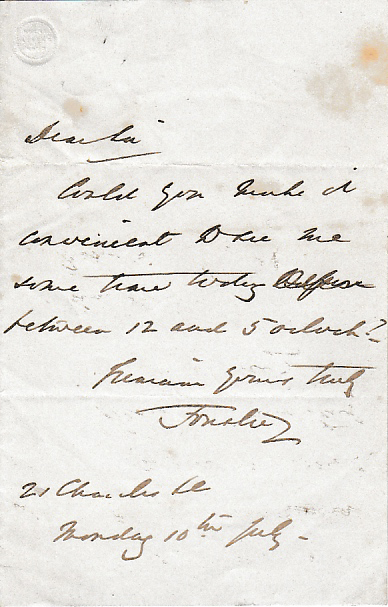 Dear Sir
Could you make it
convenient to see me
some time today Before
between 12 and 5 oclock?
Remain yours truly
21 Charles St
Monday 10th July -